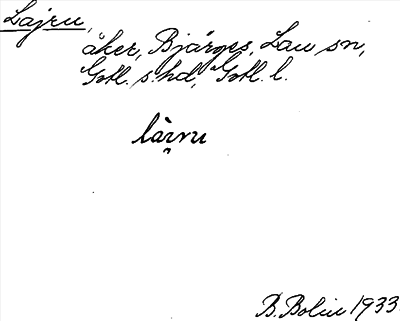 Lajru,
åker, Bjärges, Lau sn,
Gotl. s. hd, Gotl. l.
B. Bolin 1933